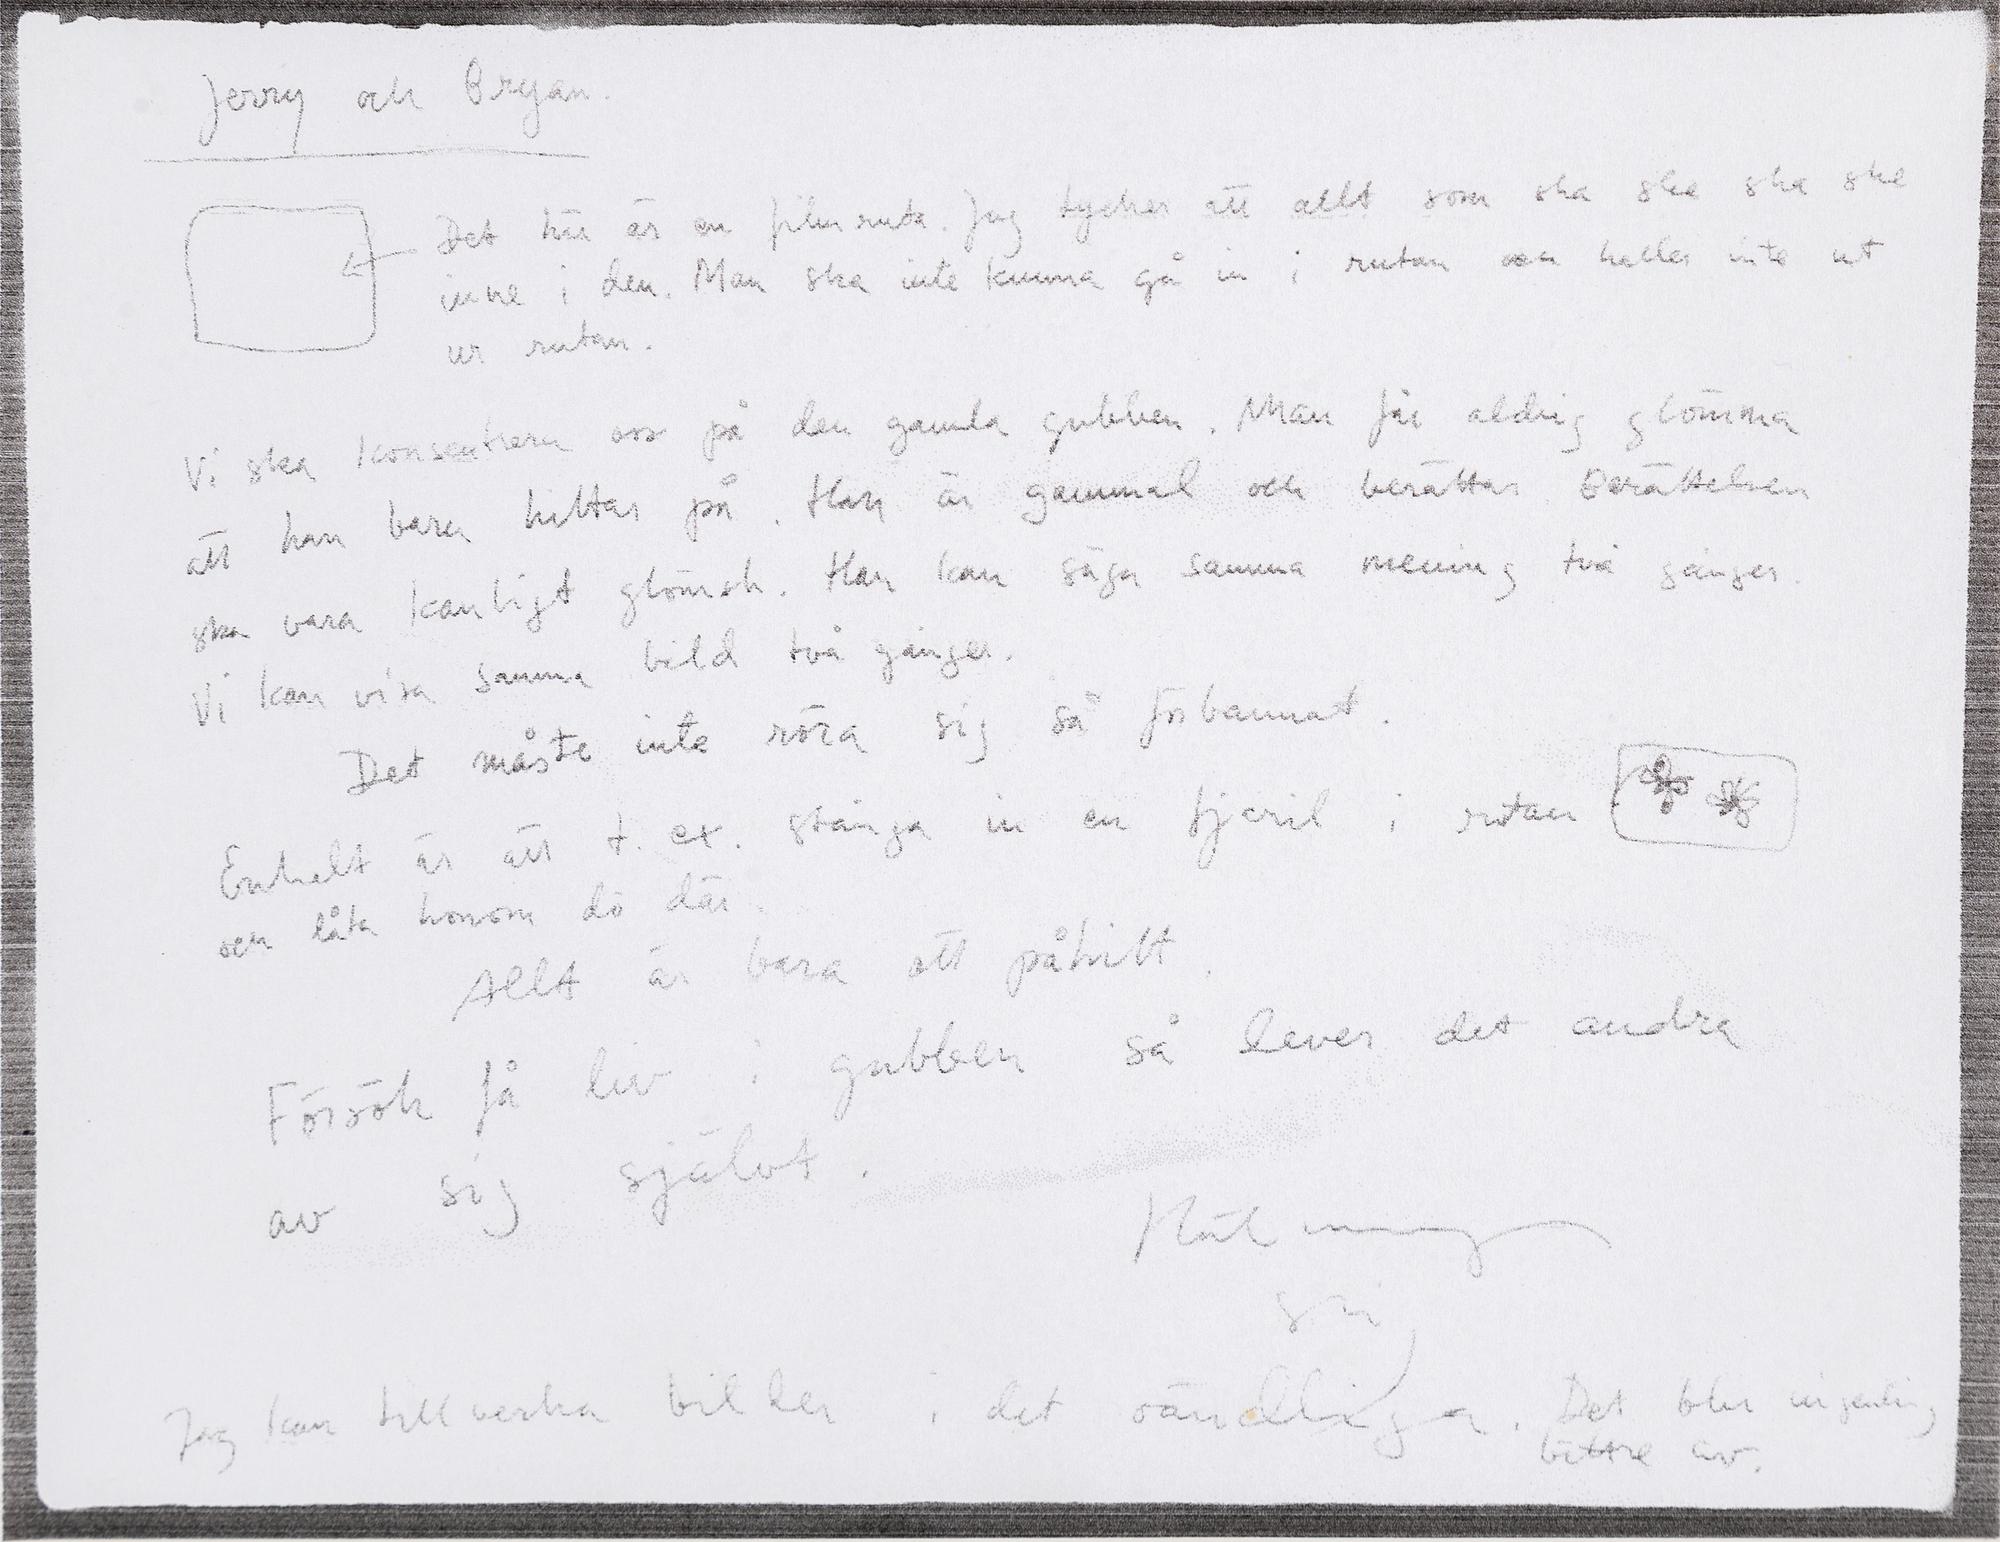 Jerry och Bryan.
Det här är en filmruta. Jag tycker att allt som ska ske ska ske
inne i den. Man ska inte kunna gå in i rutan och heller inte ut
ur rutan.
Vi ska konsentrera oss på den gamla gubben. Man får aldrig glömma
att han bara hittas på. Han är gammal och berättar. Berättelsen
ska vara kanligt glömsk. Han kan säga samma mening två gånger.
Vi kan visa samma bild två gånger.
Det måste inte röra sig så förbannat.
Enkelt är att t. ex. stänga in en fjäril i rutan
och låta honom dö där.
Allt är bara ett påhitt.
Försök få liv i gubben så lever det andra
av sig självt.
Jag kan tillverka bilder i det oändliga. Det blir ingenting
bättre av.